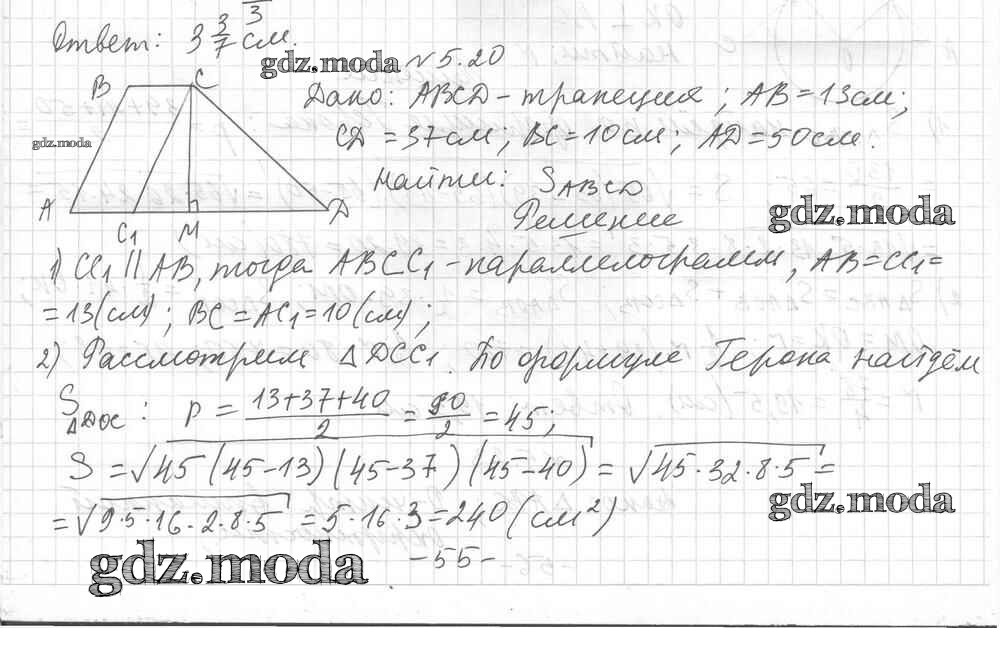 3
Ответ: 3 3/7 см.
gdz.moda №5.20
B C Дано: ABCD - трапеция; AB = 13см;
gdz.moda CD = 37см; BC = 10см; AD = 50см.
Найти: S_ABCD
A C1 M D Решение gdz.moda
1) CC1 || AB, тогда ABCC1 - параллелограмм, AB = CC1 =
= 13(см); BC = AC1 = 10(см);
2) Рассмотрим △DCC1. По формуле Герона найдём
S△DOC: P = (13+37+40)/2 = 90/2 = 45;
S = √(45(45-13)(45-37)(45-40)) = √(45·32·8·5) =
= √(9·5·16·2·8·5) = 5·16·3 = 240(см²) gdz.moda
gdz.moda -55-